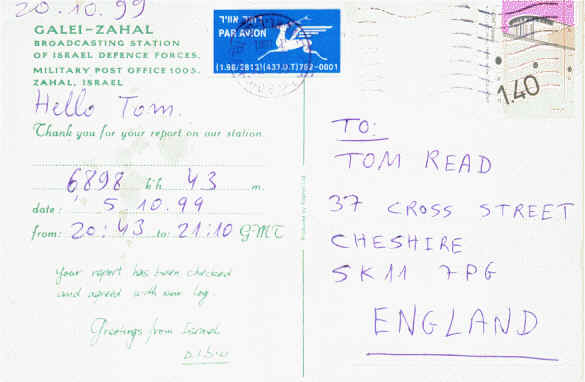 20.10.99
GALEI-ZAHAL
BROADCASTING STATION
OF ISRAEL DEFENCE FORCES,
MILITARY POST OFFICE 1005,
ZAHAL, ISRAEL
Hello Tom.
Thank you for your report on our station.
6898 kh 43 m.
date: 5.10.99
from: 20:43 to: 21:10 GMT
your report has been checked
and agreed with our log.
Greetings from Israel
דואר אויר
PAR AVION
(1.96/2813)(437.0.T)792-0001
1.40
TO:
TOM READ
37 CROSS STREET
CHESHIRE
SK11 7PG
ENGLAND